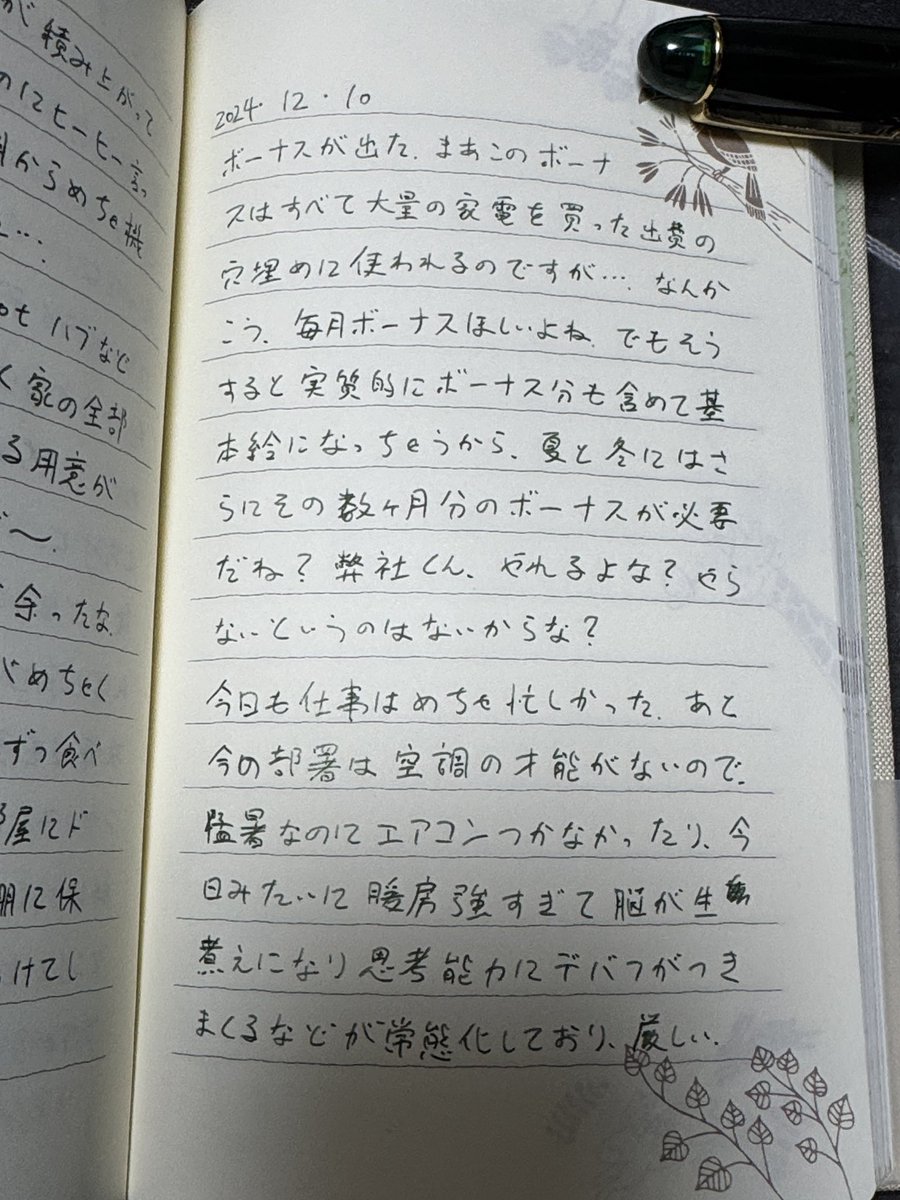 が積み上がって
のにヒーヒー言っ
月からめちゃ機
…
ot ハブなど
く家の全部
る用意が
〜.
余ったな.
めちゃく
ずつ食べ
屋にド
朋に保
けてし
2024. 12. 10
ボーナスが出た. まあこのボーナ
スはすべて大量の家電を買った出費の
穴埋めに使われるのですが… なんか
こう、毎月ボーナスほしいよね. でもそう
すると実質的にボーナス分も含めて基
本給になっちゃうから、夏と冬にはさ
らにその数ヶ月分のボーナスが必要
だね？弊社くん、やれるよな？やら
ないというのはないからな？
今日も仕事はめちゃ忙しかった. あと
今の部署は空調の才能がないので、
猛暑なのにエアコンつかなかったり、今
日みたいに暖房強すぎて脳が生
煮えになり思考能力にデバフがつき
まくるなどが常態化しており、厳しい.